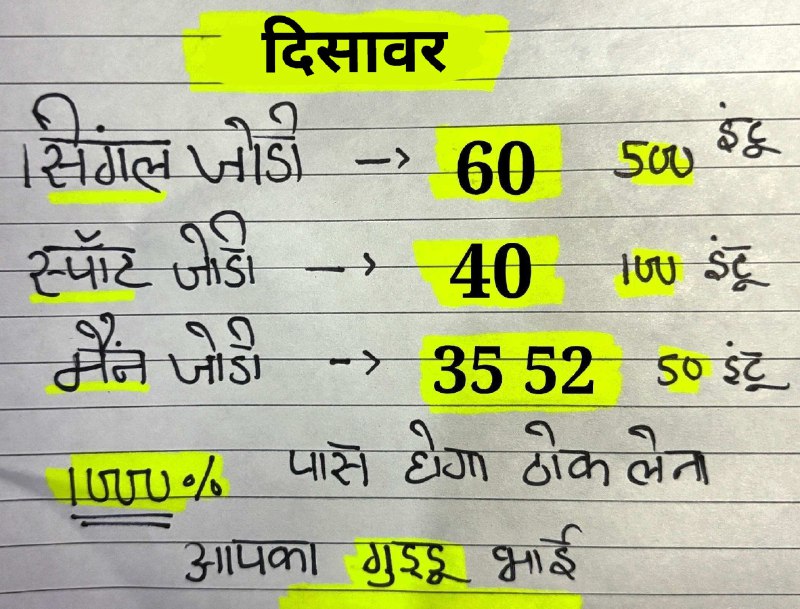 दिसावर
सिंगल जोडी -> 60 500 इंटू
स्पॉट जोडी -> 40 100 इंटू
मैंन जोडी -> 35 52 50 इंटू
1000% पास होगा ठोक लेना
आपका गुड्डू भाई